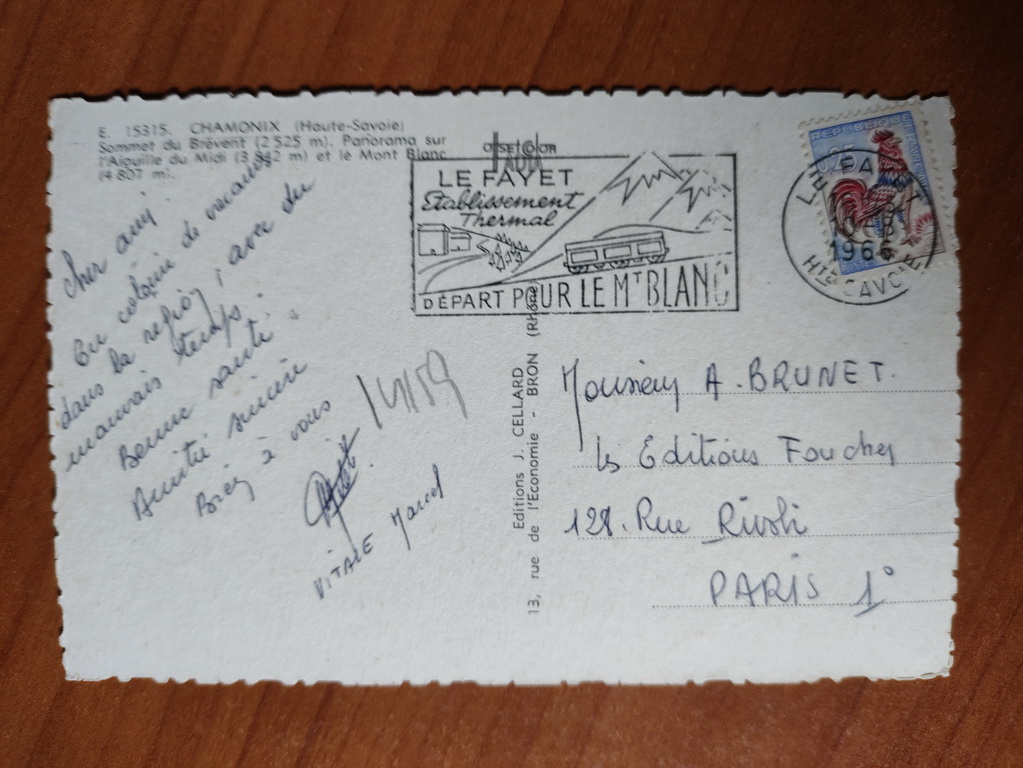 E. 15315. CHAMONIX (Haute-Savoie)
Sommet du Brévent (2 525 m). Panorama sur
l'Aiguille du Midi (3 842 m) et le Mont Blanc
(4 807 m).
Cher ami.
En colonie de vacances
dans la région, avec du
mauvais temps.
Bonne santé.
Amitié sincère
Bien à vous
VITALE Marcel
LE FAYET
Etablissement
Thermal
DÉPART POUR LE MT BLANC
REPUBLIQUE
0,25
LE FAYET
1966
HTE SAVOIE
Editions J. CELLARD
13, rue de l'Economie - BRON (Rhône
Monsieur A. BRUNET.
les Editions Foucher
128. Rue Rivoli
PARIS 1°